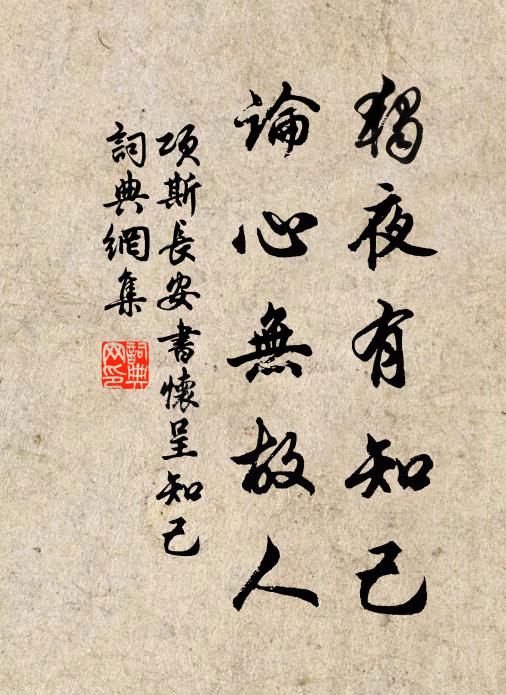 獨夜有知己
論心無故人
項斯長安書懷呈知己
詞典網集
詞典
网印